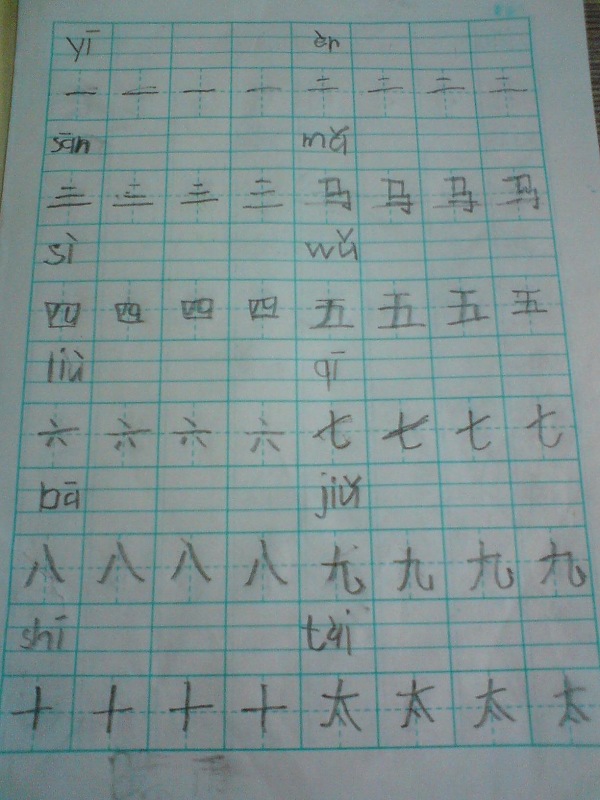 yī èr
一 一 一 一 二 二 二 二
sān mǎ
三 三 三 三 马 马 马 马
sì wǔ
四 四 四 四 五 五 五 五
liù qī
六 六 六 六 七 七 七 七
bā jiǔ
八 八 八 八 九 九 九 九
shī tài
十 十 十 十 太 太 太 太